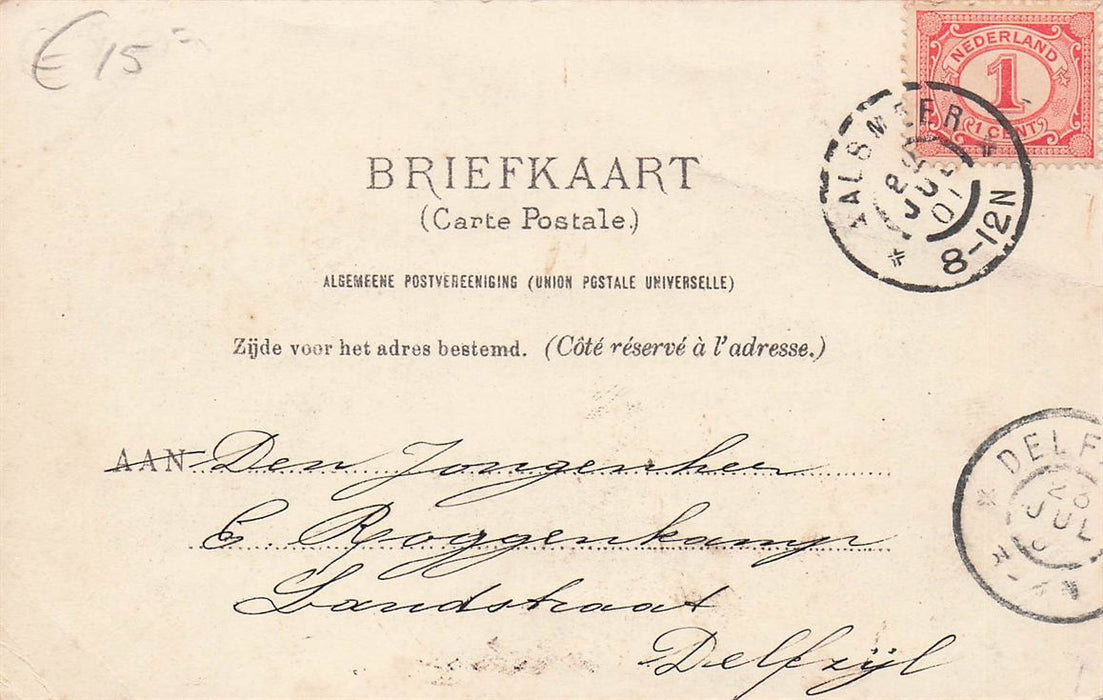 € 15
NEDERLAND
1
1 CENT
AALSMEER
JUL
01
8-12N
BRIEFKAART
(Carte Postale.)
ALGEMEENE POSTVEREENIGING (UNION POSTALE UNIVERSELLE)
Zijde voor het adres bestemd. (Côté réservé à l'adresse.)
AAN Den Jongenheer
E. Roggenkamp
Landstraat
Delfzijl
DELFZ
26
JUL